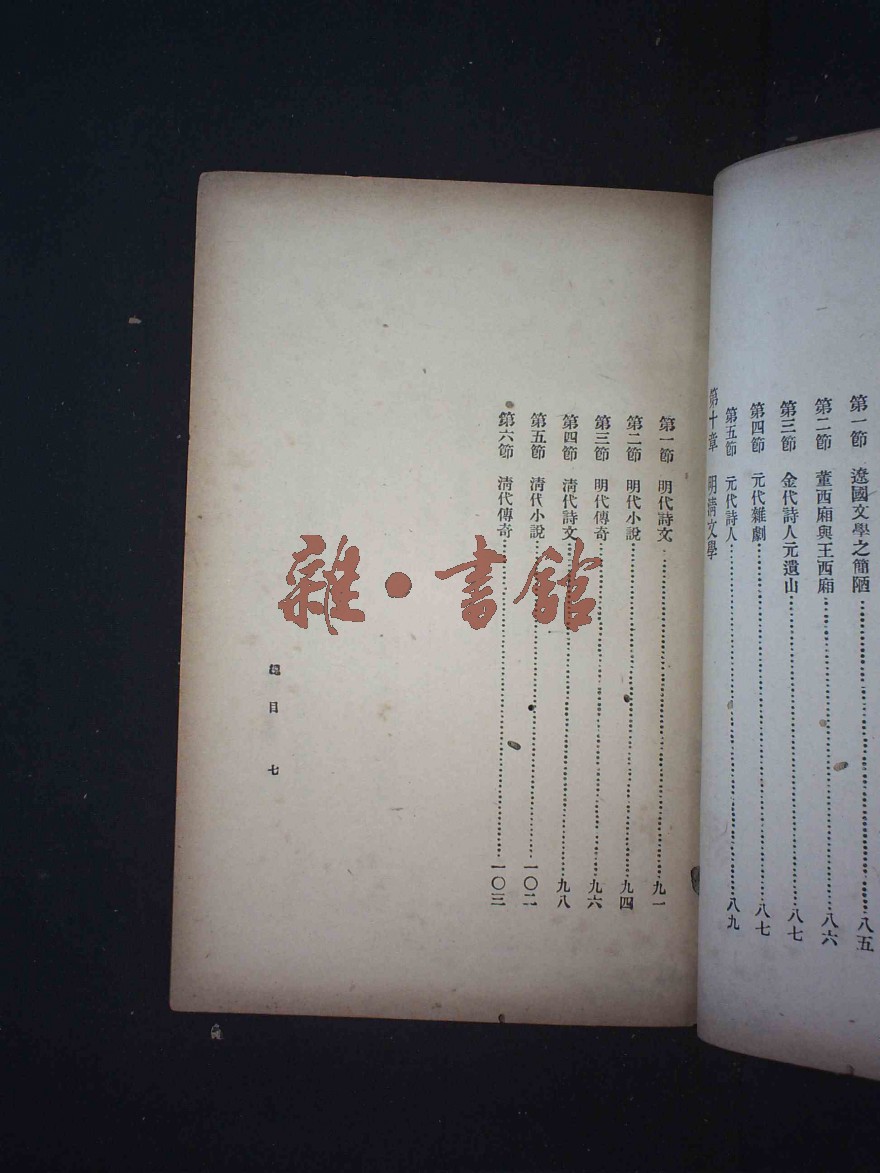 第一節　遼國文學之簡陋……八五
第二節　董西廂與王西廂……八六
第三節　金代詩人元遺山……八七
第四節　元代雜劇……八七
第五節　元代詩人……八九
第十章　明清文學
第一節　明代詩文……九一
第二節　明代小說……九四
第三節　明代傳奇……九六
第四節　清代詩文……九八
第五節　清代小說……一〇二
第六節　清代傳奇……一〇三
總目　七
雜·書館